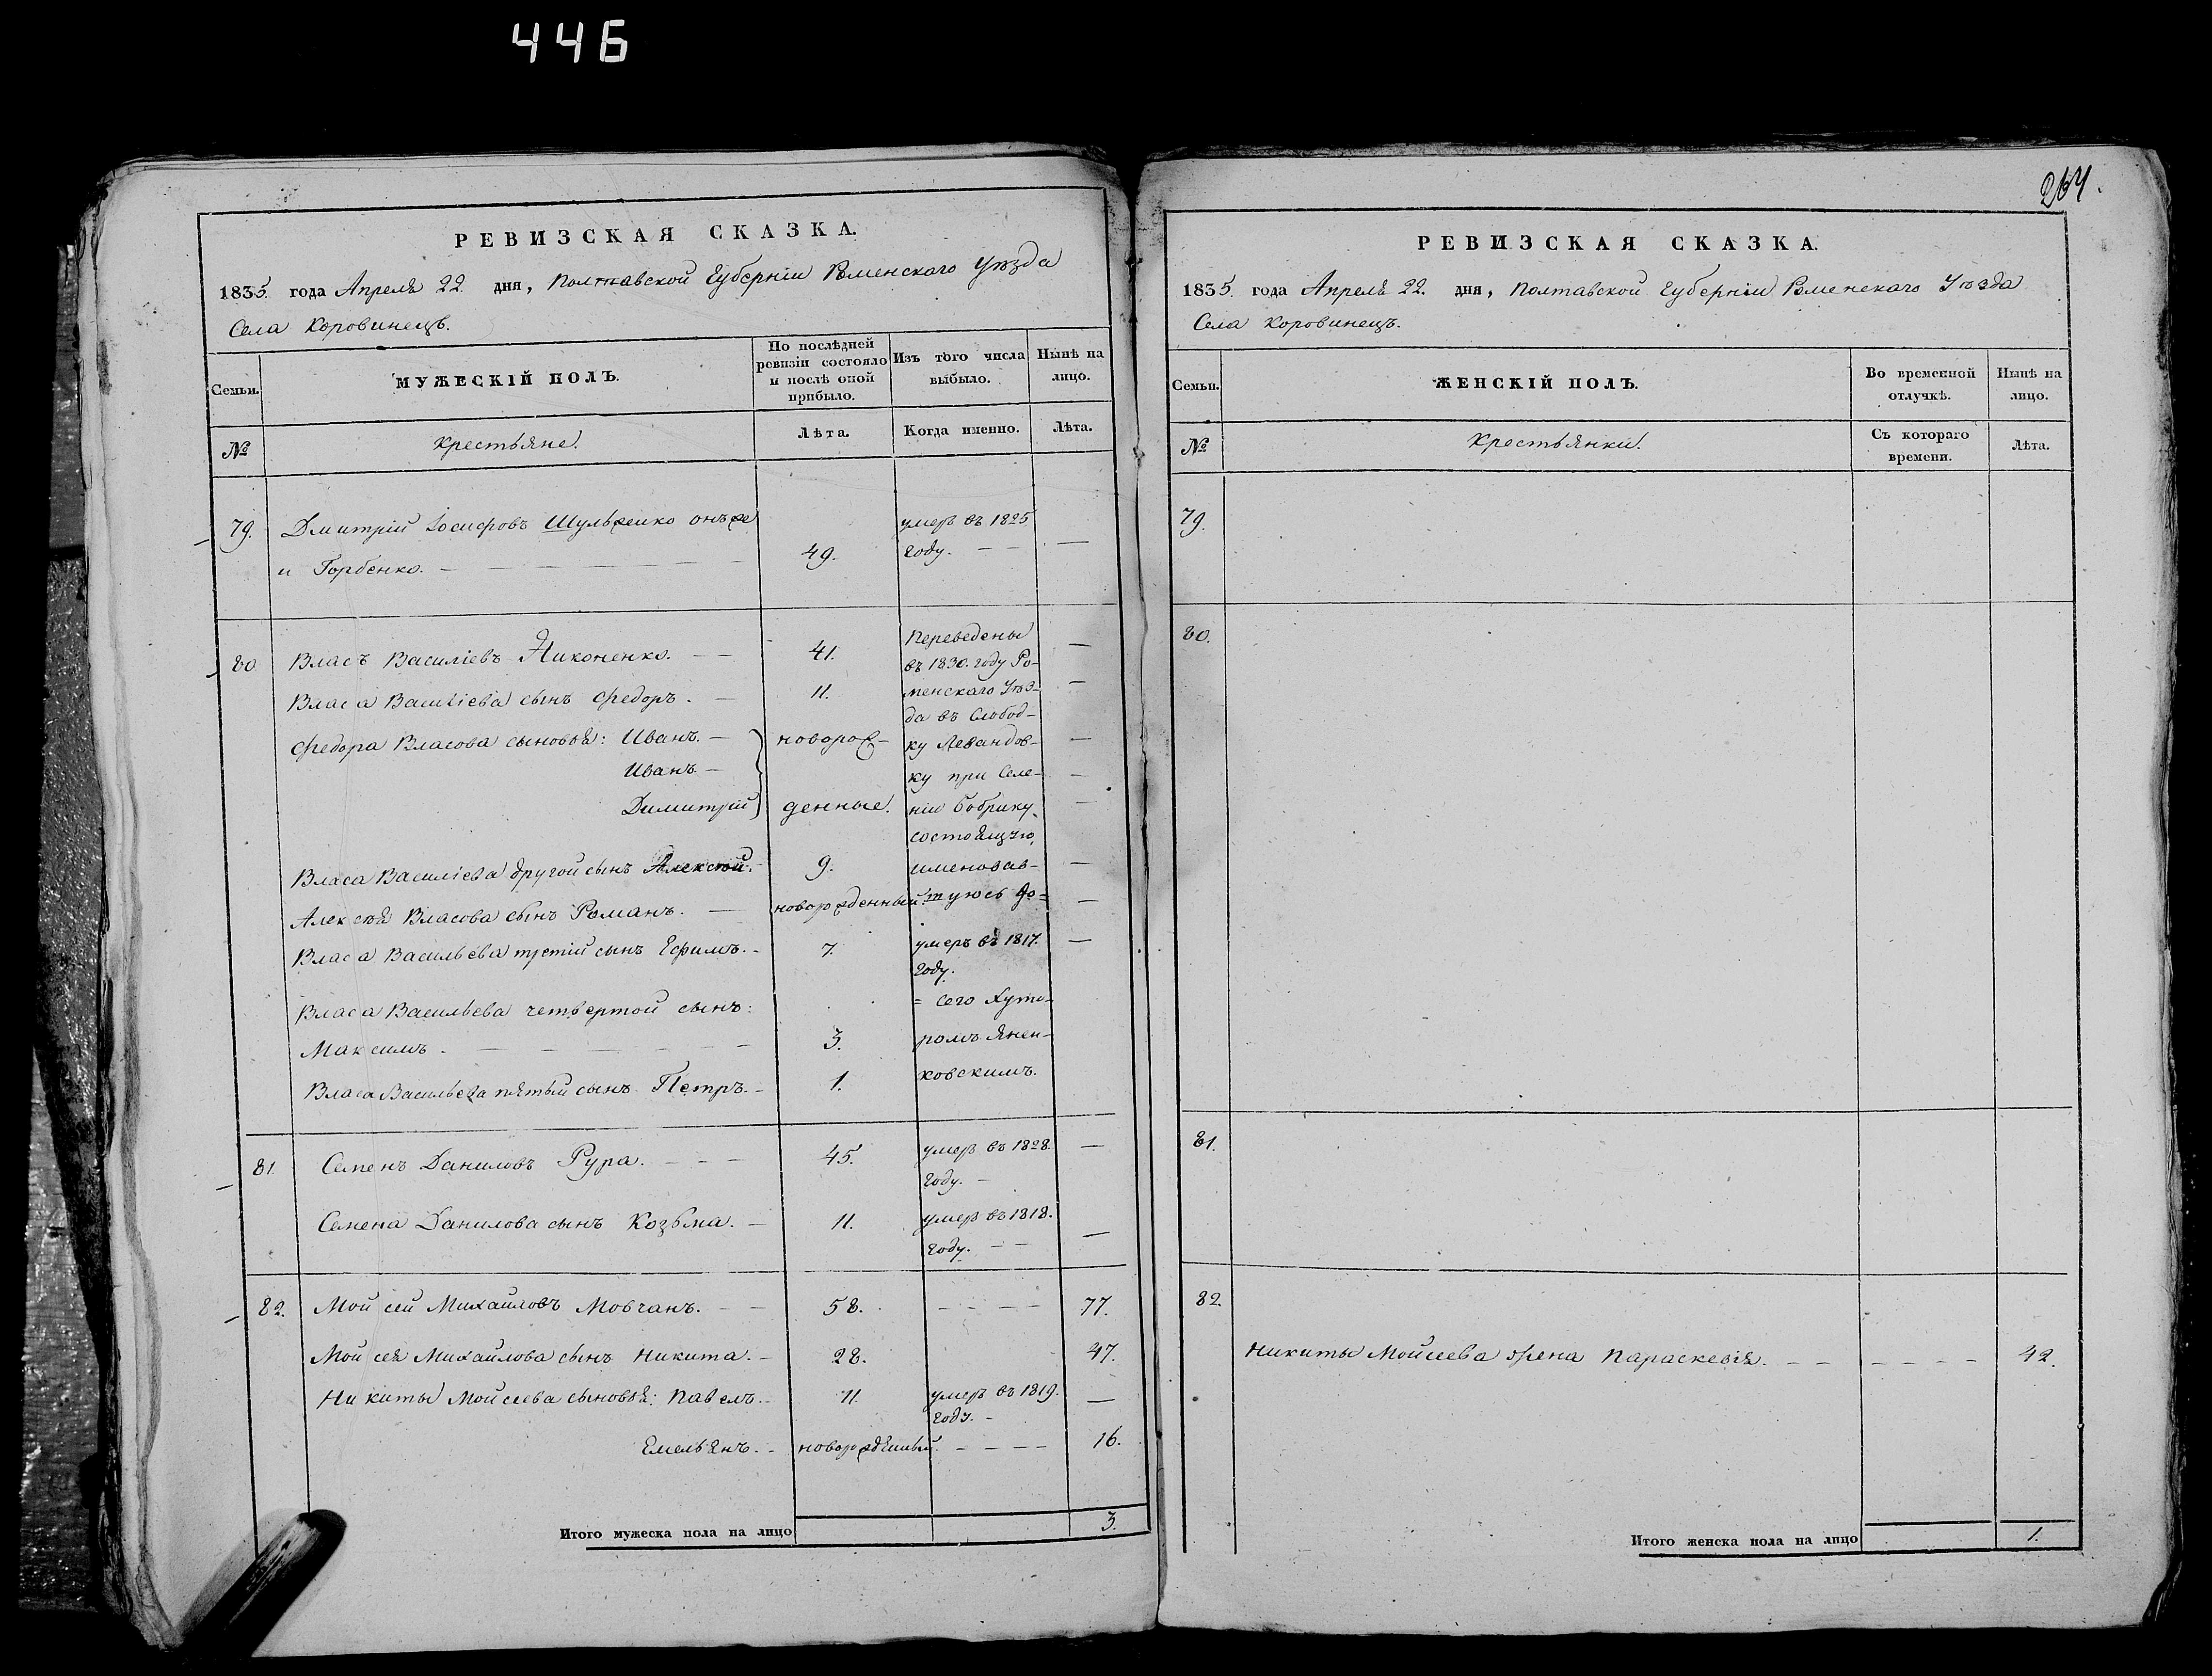 446
264.
РЕВИЗСКАЯ СКАЗКА.
1835. года Апреля 22. дня, Полтавской Губерніи Роменскаго Уѣзда
Села Коровинецъ.
Семьи. МУЖЕСКІЙ ПОЛЪ. По послѣдней ревизіи состояло и послѣ оной прибыло. Изъ того числа выбыло. Нынѣ на лицо.
№ Крестьяне. Лѣта. Когда именно. Лѣта.
79. Дмитрій Іосифовъ Шульженко онъ же умеръ въ 1825
и Горбенко. — 49. году. — —
80 Власъ Василіевъ Никоненко. — 41. Переведены —
въ 1830. году Ро-
Власа Василіева сынъ Федоръ. — 11. менскаго Уѣз- —
да въ Слобод-
Федора Власова сыновья: Иванъ. — новорож- ку Левандов- —
Иванъ — ку при Селе- —
Димитрій денные. ніи Бобрику —
состоящую,
Власа Василіева другой сынъ Алексѣй. 9. именовав- —
Алексѣя Власова сынъ Романъ. — новорожденный. шуюсь до= —
Власа Васильева третій сынъ Ефимъ. - 7. умеръ въ 1817. —
году.
Власа Васильева четвертой сынъ: = сего Хуто-
Максимъ. — 3. ромъ Янен-
Власа Васильева пятый сынъ Петръ. - 1. ковскимъ.
81. Семенъ Даниловъ Рура. — — — 45. умеръ въ 1828. —
году. —
Семена Данилова сынъ Козьма. — 11. умеръ въ 1818.
году. — — —
82. Мойсей Михайловъ Мовчанъ. — — 58. — — — — 77.
Мойсея Михайлова сынъ Никита. — 28. 47.
Никиты Мойсеева сыновья: Павелъ. - 11. умеръ въ 1819. —
году. —
Емельянъ. - новорожденный. — — — — 16.
Итого мужеска пола на лицо 3.
РЕВИЗСКАЯ СКАЗКА.
1835. года Апреля 22. дня, Полтавской Губерніи Роменскаго Уѣзда
Села Коровинецъ.
Семьи. ЖЕНСКІЙ ПОЛЪ. Во временной отлучкѣ. Нынѣ на лицо.
№ Крестьянки. Съ котораго времени. Лѣта.
79.
80.
81.
82.
Никиты Мойсеева жена Параскевія. — — — — — — 42.
Итого женска пола на лицо 1.